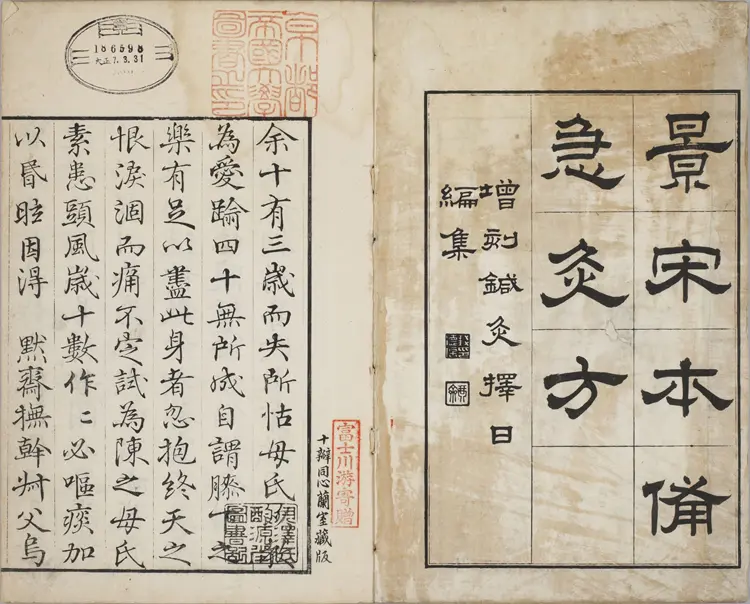 景宋本備
急灸方
增刻鍼灸擇日
編集
京都
帝國大學
圖書之印
186598
大正7.3.31
余十有三歲而失所怙母氏
為愛踰四十無所成自謂膝下之
樂有足以盡此身者忽抱終天之
恨淚涸而痛不定試為陳之母氏
素患頭風歲十數作〻必嘔痰加
以昏眩因得 默齋撫幹叔父烏
伊澤氏
酌源堂
圖書記
富士川游寄贈
十瓣同心蘭室藏版